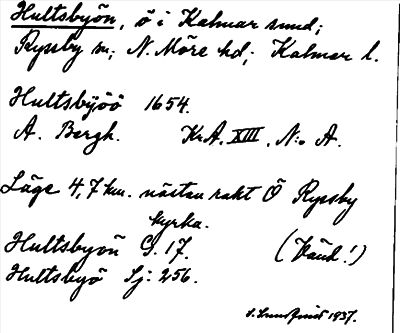 Hultsbyön, ö i Kalmar sund;
Ryssby sn; N. Möre hd; Kalmar l.
Hultsbyöö 1654.
A. Bergh. Kr.A. XIII. N:o A.
Läge 4,7 km. nästan rakt Ö Ryssby
kyrka.
Hultsbyön G. 17. (Känd!)
Hultsbyö Sj: 256.
1937.